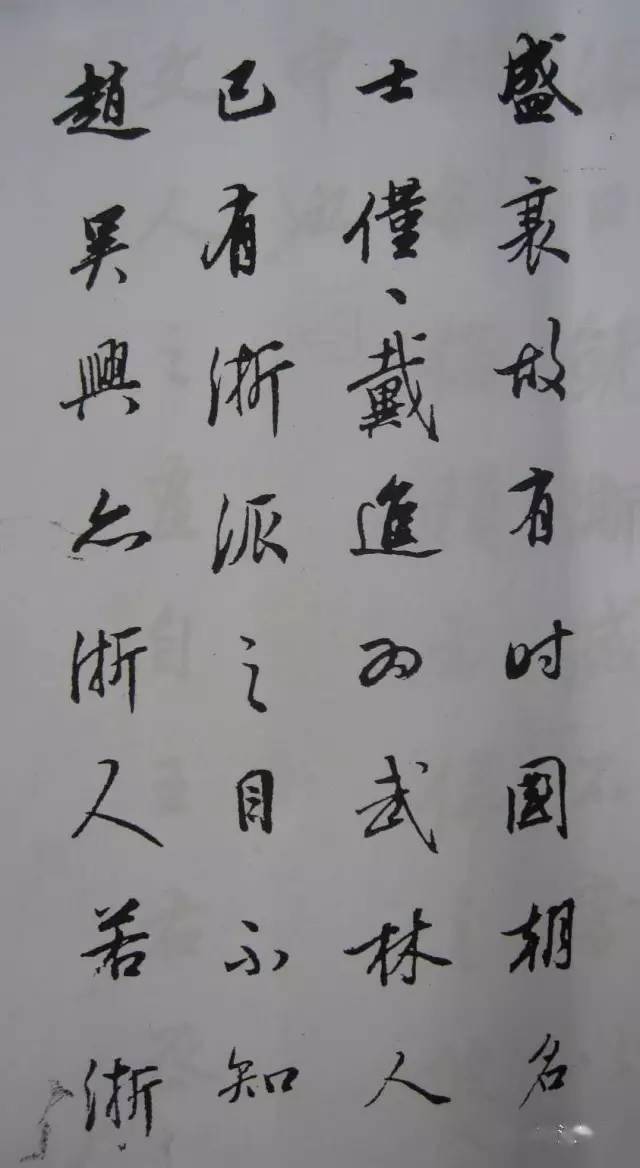 盛衰故有时國朝名
士僅、戴進为武林人
已有浙派之目不知
趙吴興亦浙人若浙